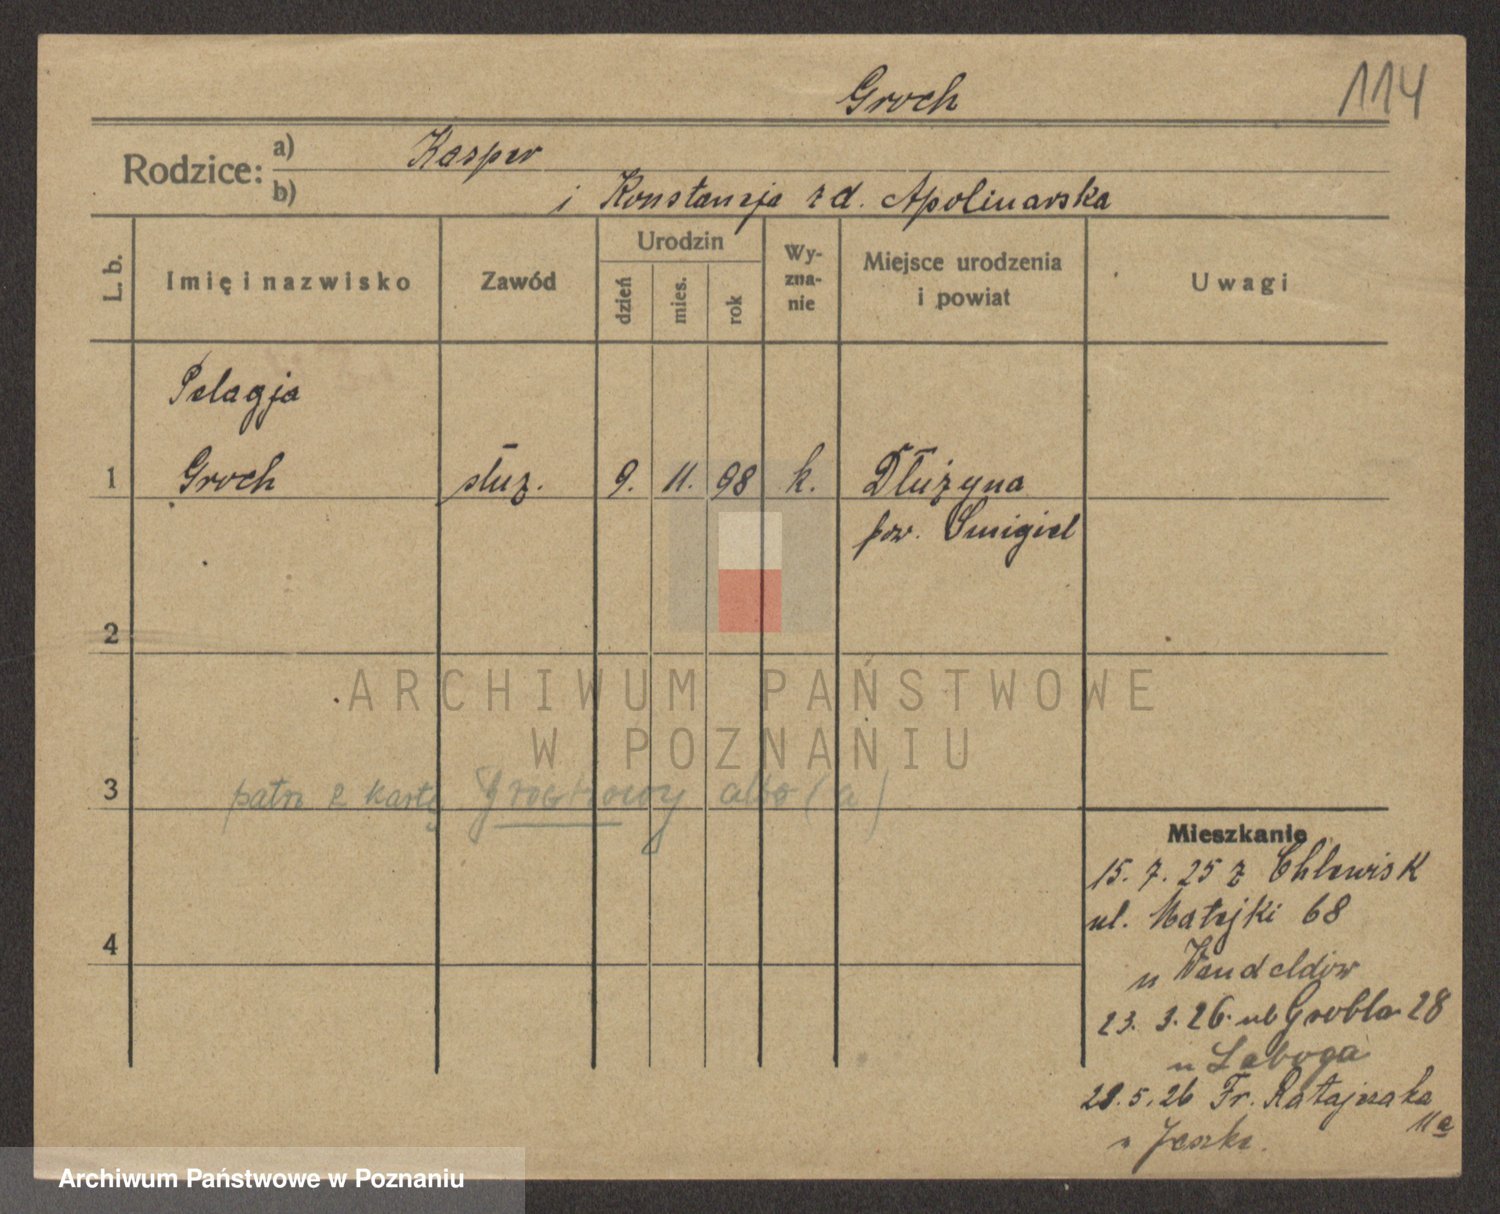 Groch
114
Rodzice:
a) Kasper
b) i Konstancja z d. Apolinarska
L. b.
Imię i nazwisko
Zawód
Urodzin
dzień
mies.
rok
Wy-
zna-
nie
Miejsce urodzenia
i powiat
Uwagi
Pelagja
1 Groch służ. 9. 11. 98 k. Dłużyna
pow. Śmigiel
2
ARCHIWUM PAŃSTWOWE
W POZNANIU
3
patrz kartę albo (a)
4
Mieszkanie
15. 7. 25 z Chlewisk
ul. Matejki 68
u
23. 3. 26. ul Grobla 28
u Łaboga
28. 5. 26 Fr. Ratajczaka
11a
u
Archiwum Państwowe w Poznaniu